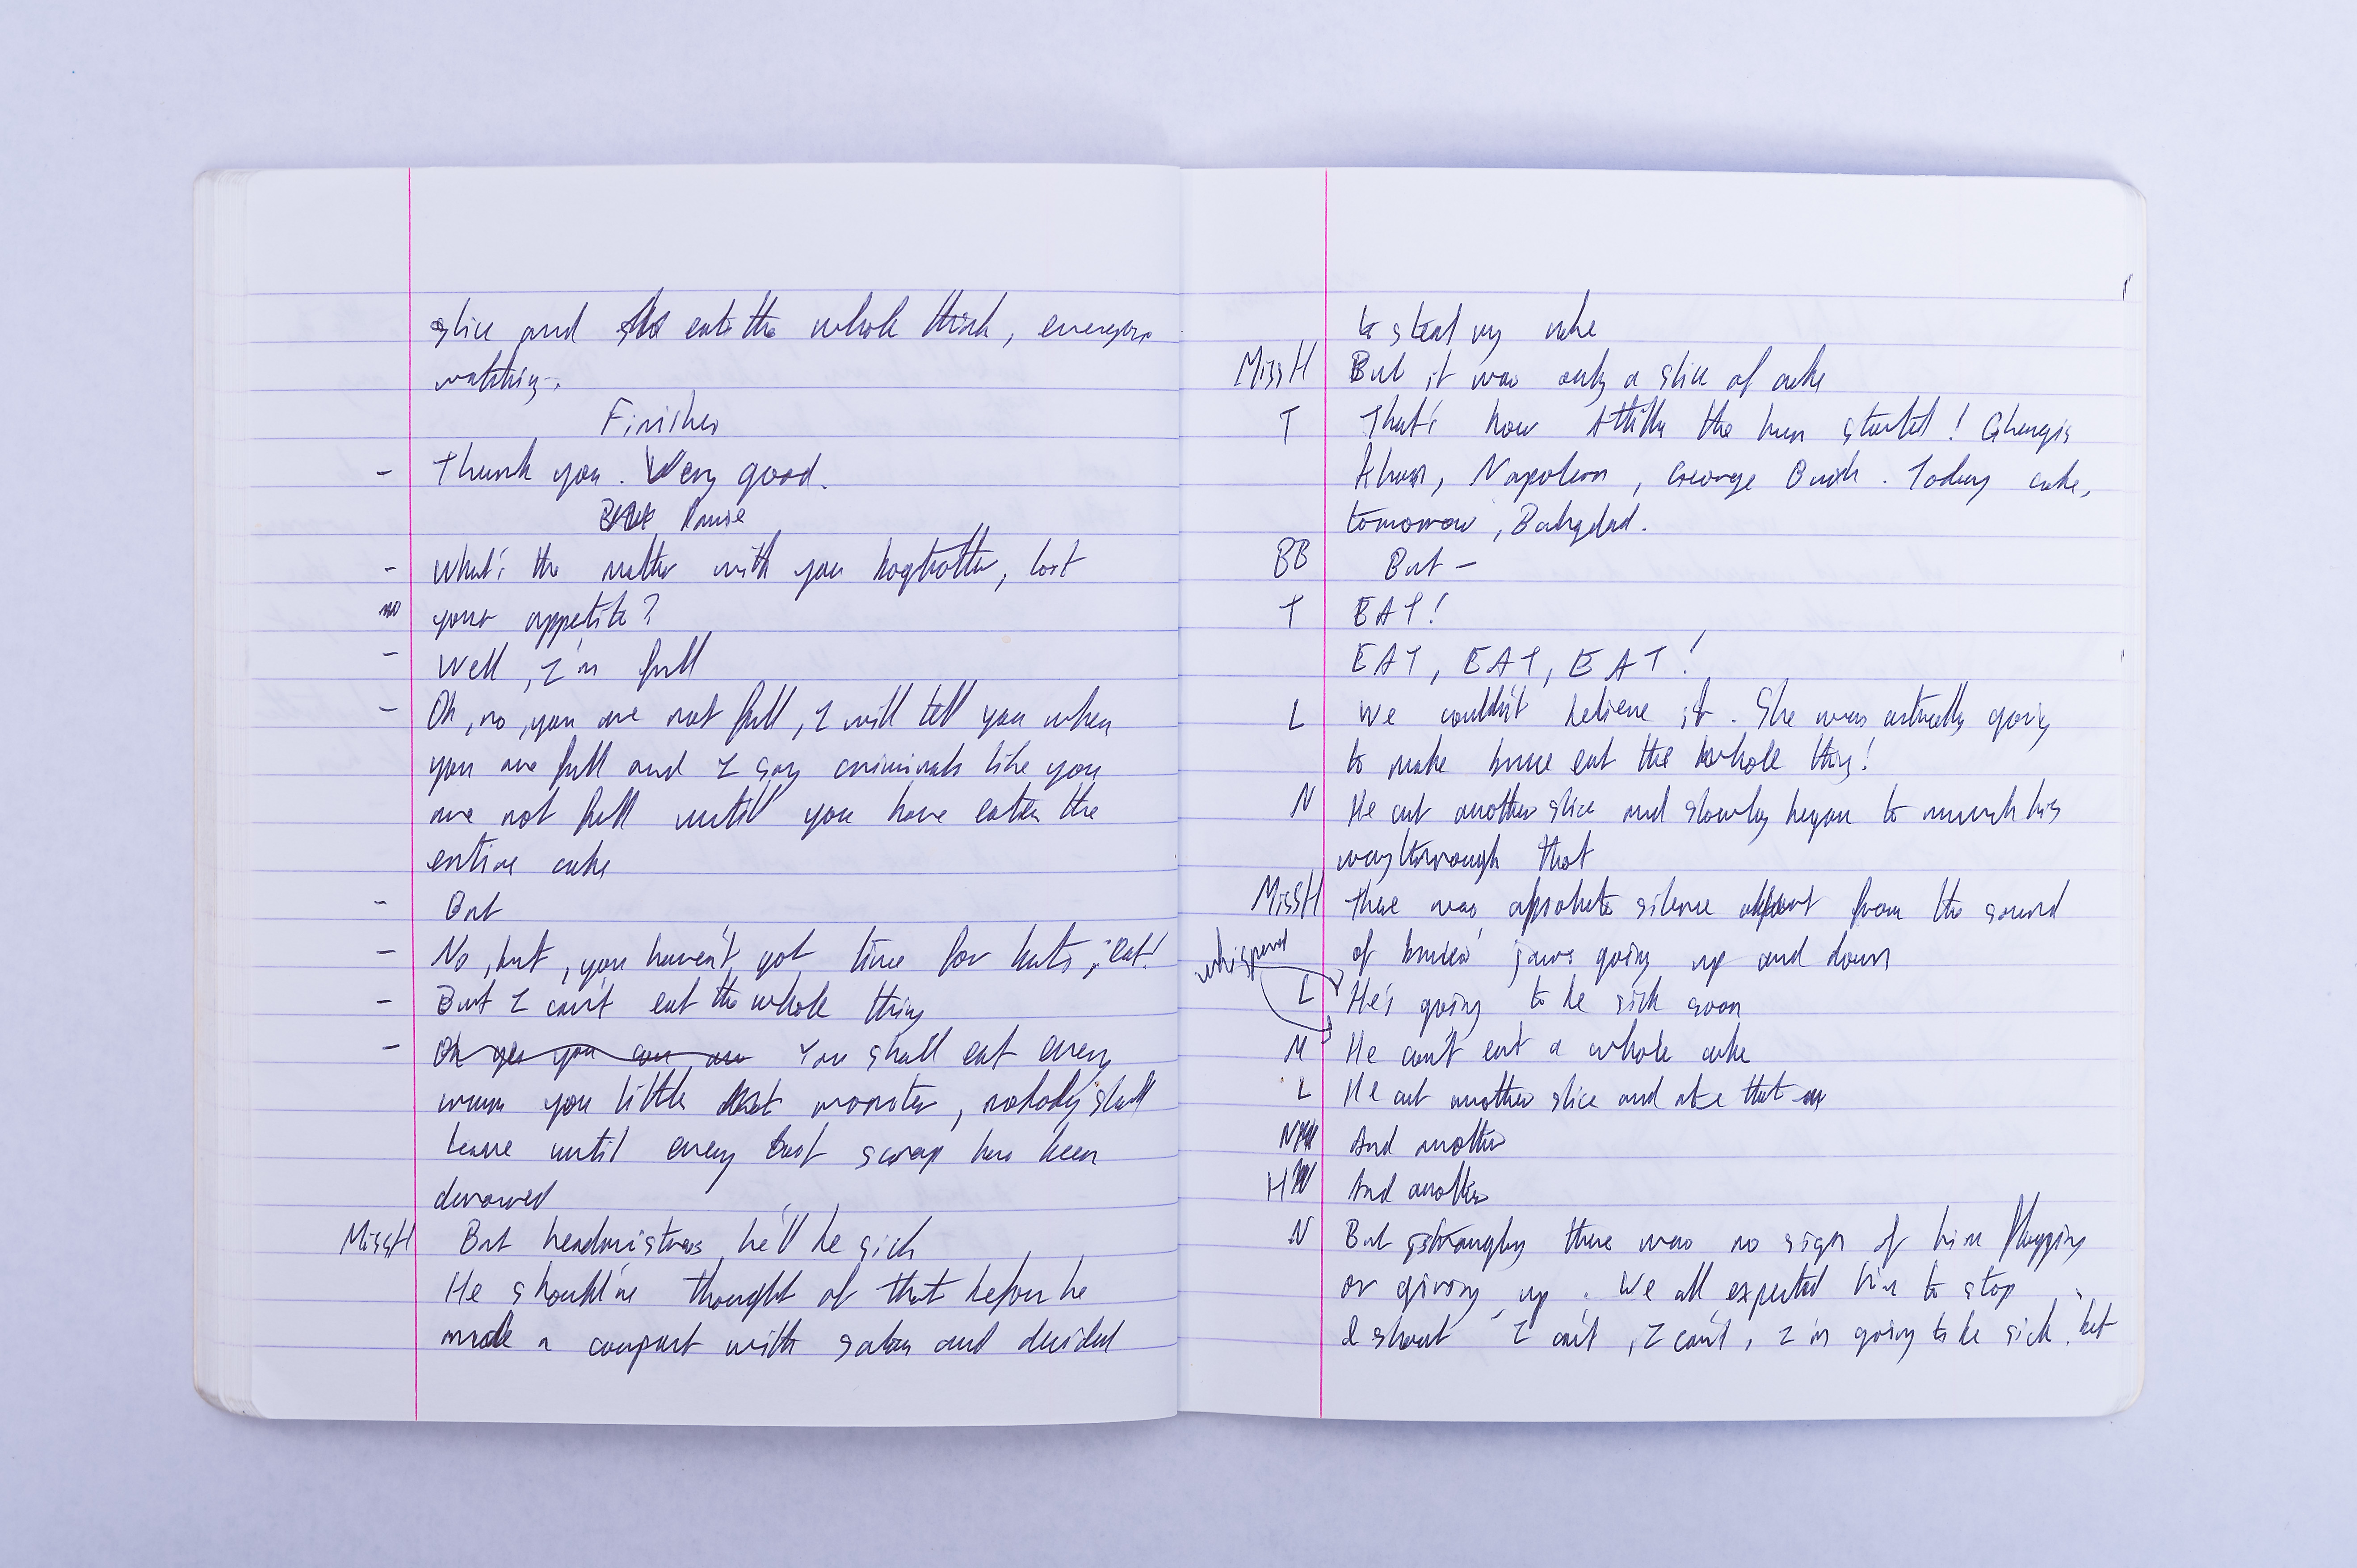 slice and eats the whole think, everyone
watching.
Finishes
- Thank you. Very good.
Pause
- What's the matter with you hogtrotter, lost
your appetite?
- Well, I'm full
- Oh, no, you are not full, I will tell you when
you are full and I say criminals like you
are not full until you have eaten the
entire cake
- But
- No, but, you haven't got time for buts, eat!
- But I can't eat the whole thing
- Oh yes you can You shall eat every
you little monster, nobody shall
leave until every last scrap has been
devowed
MissH But headmistress he'll be sick
He should've thought of that before he
made a compact with satan and decided
to steal my cake
MissH But it was only a slice of cake
T That's how Attilla the hun started! Ghengis
Khan, Napoleon, George Bush. Today cake,
tomorrow, Bahgdad.
BB But -
T EAT!
EAT, EAT, EAT!
L We couldn't believe it. She was actually going
to make bruce eat the whole thing!
N He cut another slice and slowly began to munch his
way through that
MissH There was absolute silence apart from the sound
whispered of bruces' jaws going up and down
L He's going to be sick soon
M He can't eat a whole cake
L He cut another slice and ate that
N And another
H And another
N But strangley there was no sign of him flagging
or giving up. We all expected him to stop
& shout I can't, I can't, I'm going to be sick, but